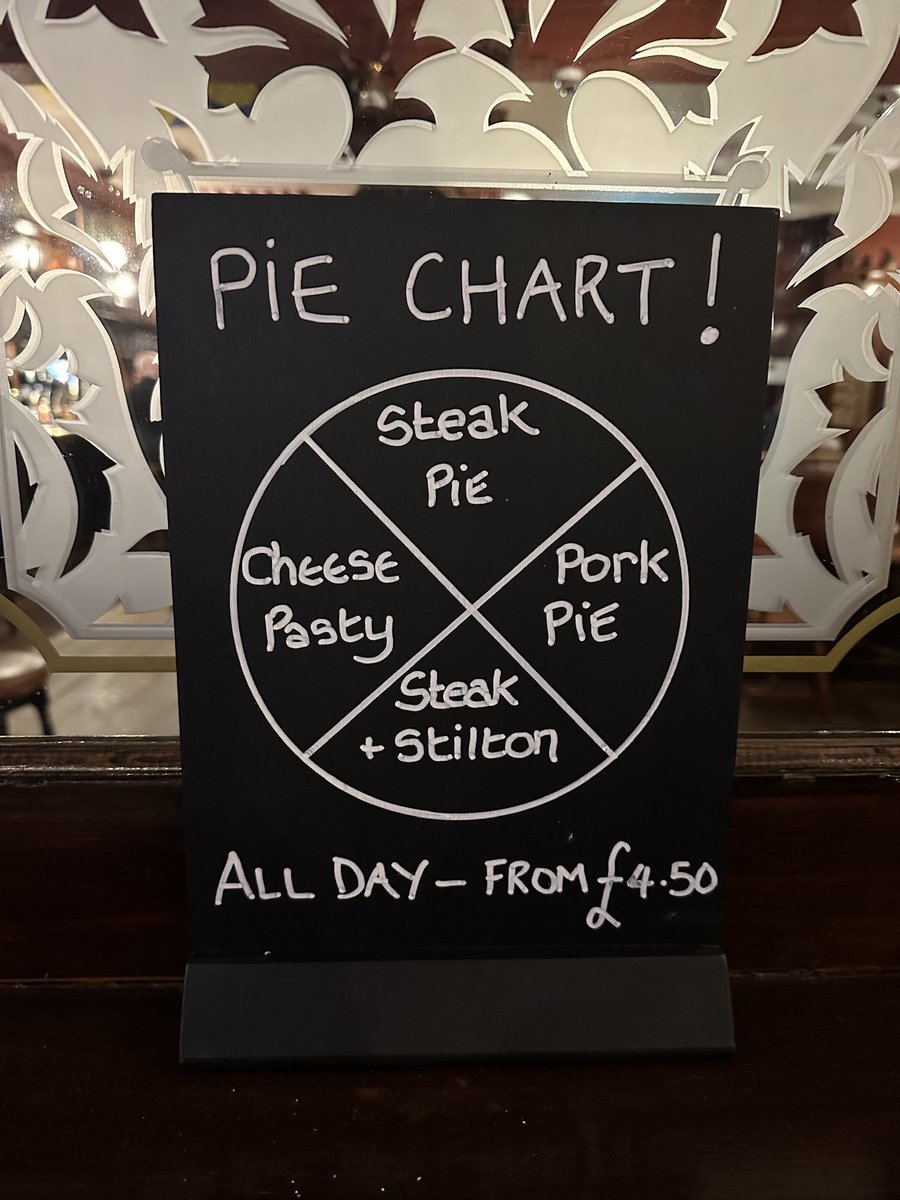 PiE CHART!
Steak
PiE
Cheese
Pasty
Pork
PiE
Steak
+ Stilton
ALL DAY - FROM £4.50